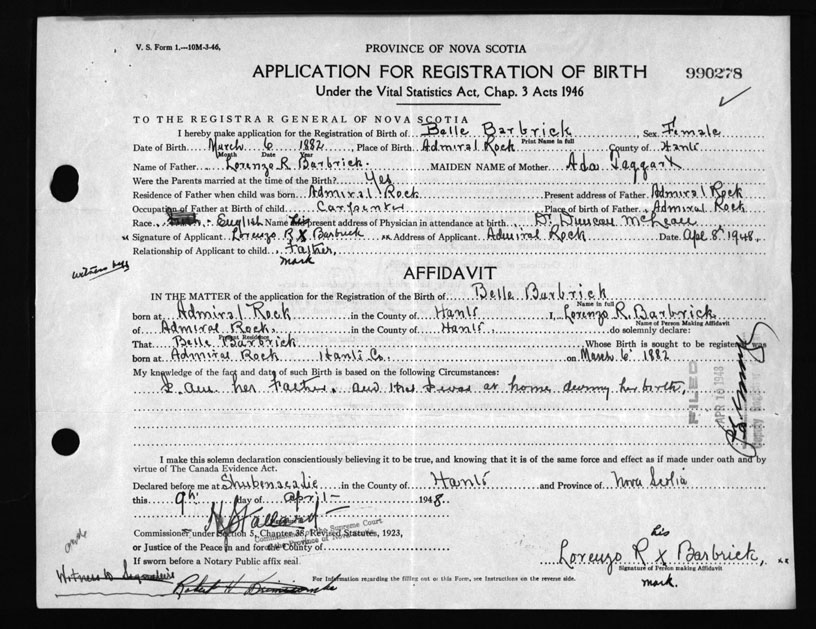 V. S. Form 1.—10M-3-46.
PROVINCE OF NOVA SCOTIA
APPLICATION FOR REGISTRATION OF BIRTH 990278
Under the Vital Statistics Act, Chap. 3 Acts 1946
TO THE REGISTRAR GENERAL OF NOVA SCOTIA
I hereby make application for the Registration of Birth of Belle Barbrick Sex Female
Print Name in full
Date of Birth March 6 1882, Place of Birth Admiral Rock County of Hants
Month Date Year
Name of Father Lorenzo R Barbrick. MAIDEN NAME of Mother Ada Taggart
Were the Parents married at the time of the Birth? Yes
Residence of Father when child was born Admiral Rock Present address of Father Admiral Rock
Occupation of Father at Birth of child Carpenter Place of birth of Father Admiral Rock
Race English Name present address of Physician in attendance at birth Dr Duncan McLean
his
Signature of Applicant Lorenzo R X Barbrick Address of Applicant Admiral Rock Date Apl 8th 1948.
Relationship of Applicant to child Father,
mark
witness
AFFIDAVIT
IN THE MATTER of the application for the Registration of the Birth of Belle Barbrick
Name in full
born at Admiral Rock in the County of Hants I, Lorenzo R. Barbrick
Name of Person Making Affidavit
of Admiral Rock. in the County of Hants. do solemnly declare:
Present Residence
That Belle Barbrick Whose Birth is sought to be registered was
born at Admiral Rock Hants Co. on March 6 1882
My knowledge of the fact and date of such Birth is based on the following Circumstances:
I am her Father, and that I was at home during her birth,
FILED
APR 10 1948
I make this solemn declaration conscientiously believing it to be true, and knowing that it is of the same force and effect as if made under oath and by
virtue of The Canada Evidence Act.
Declared before me at Shubenacadie in the County of Hants and Province of Nova Scotia
this 9th day of April 1948.
Commissioner under Section 5, Chapter 38, Revised Statutes, 1923,
of the Supreme Court
or Justice of the Peace in and for the County of
If sworn before a Notary Public affix seal.
his
Lorenzo R X Barbrick,
Signature of Person making Affidavit
mark.
Witness to Signature
Robert H
For Information regarding the filling out of this Form, see Instructions on the reverse side.